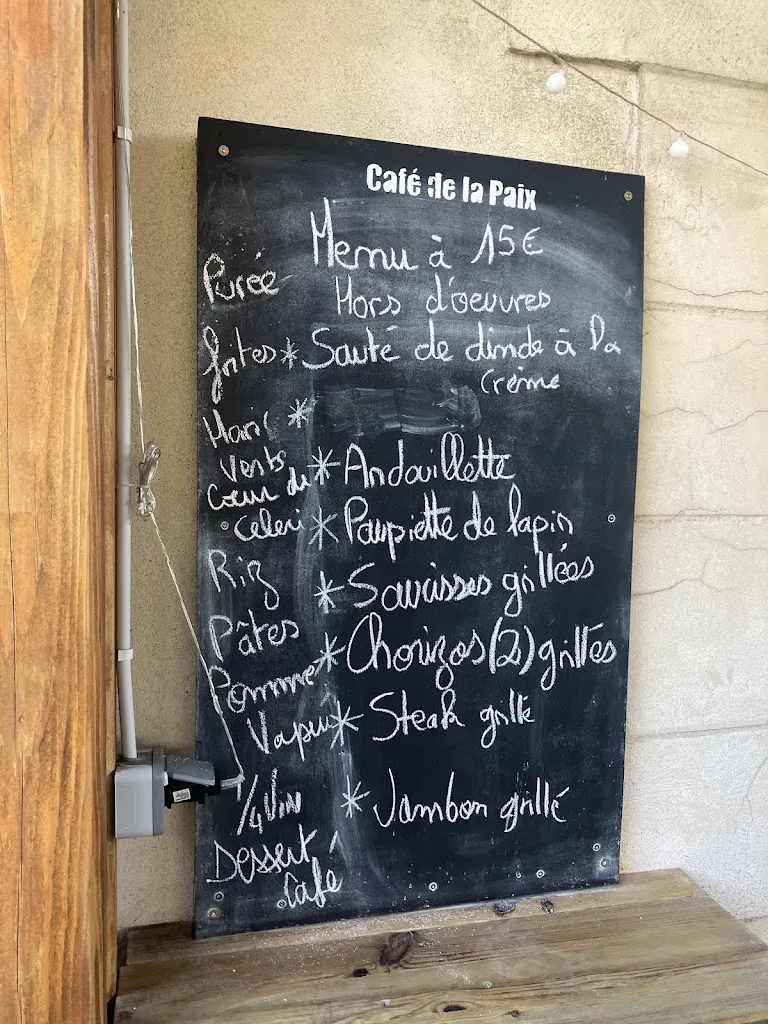 Café de la Paix
Menu à 15€
Hors d'oeuvres
* Sauté de dinde à la
crème
*
* Andouillette
* Paupiette de lapin
* Saucisses grillées
* Chorizos (2) grillés
* Steak grillé
* Jambon grillé
Purée
frites
Haric
Verts
Cœur de
Celeri
Riz
Pâtes
Pomme
Vapeur
1/4 Vin
Dessert
Café